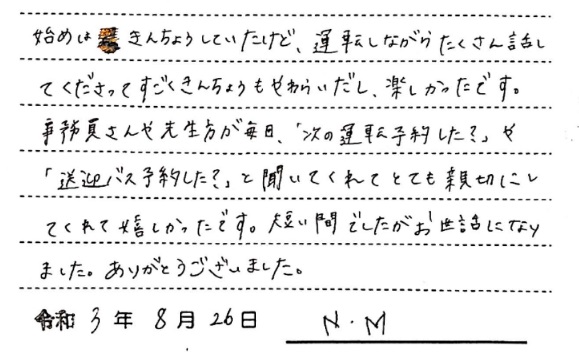 始めはきんちょうしていたけど、運転しながらたくさん話し
てくださってすごくきんちょうもやわらいだし、楽しかったです。
事務員さんや先生方が毎日、「次の運転予約した？」や
「送迎バス予約した？」と聞いてくれてとても親切にし
てくれて嬉しかったです。短い間でしたがお世話になり
ました。ありがとうございました。
令和 3 年 8 月 26 日 N・M